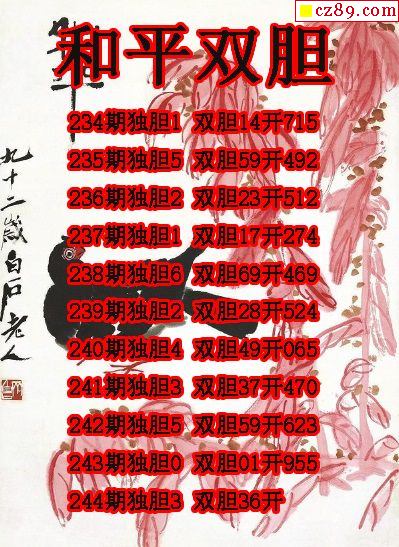 cz89.com
和平双胆
234期独胆1 双胆14开715
235期独胆5 双胆59开492
236期独胆2 双胆23开512
237期独胆1 双胆17开274
238期独胆6 双胆69开469
239期独胆2 双胆28开524
240期独胆4 双胆49开065
241期独胆3 双胆37开470
242期独胆5 双胆59开623
243期独胆0 双胆01开955
244期独胆3 双胆36开
九十二岁白石老人